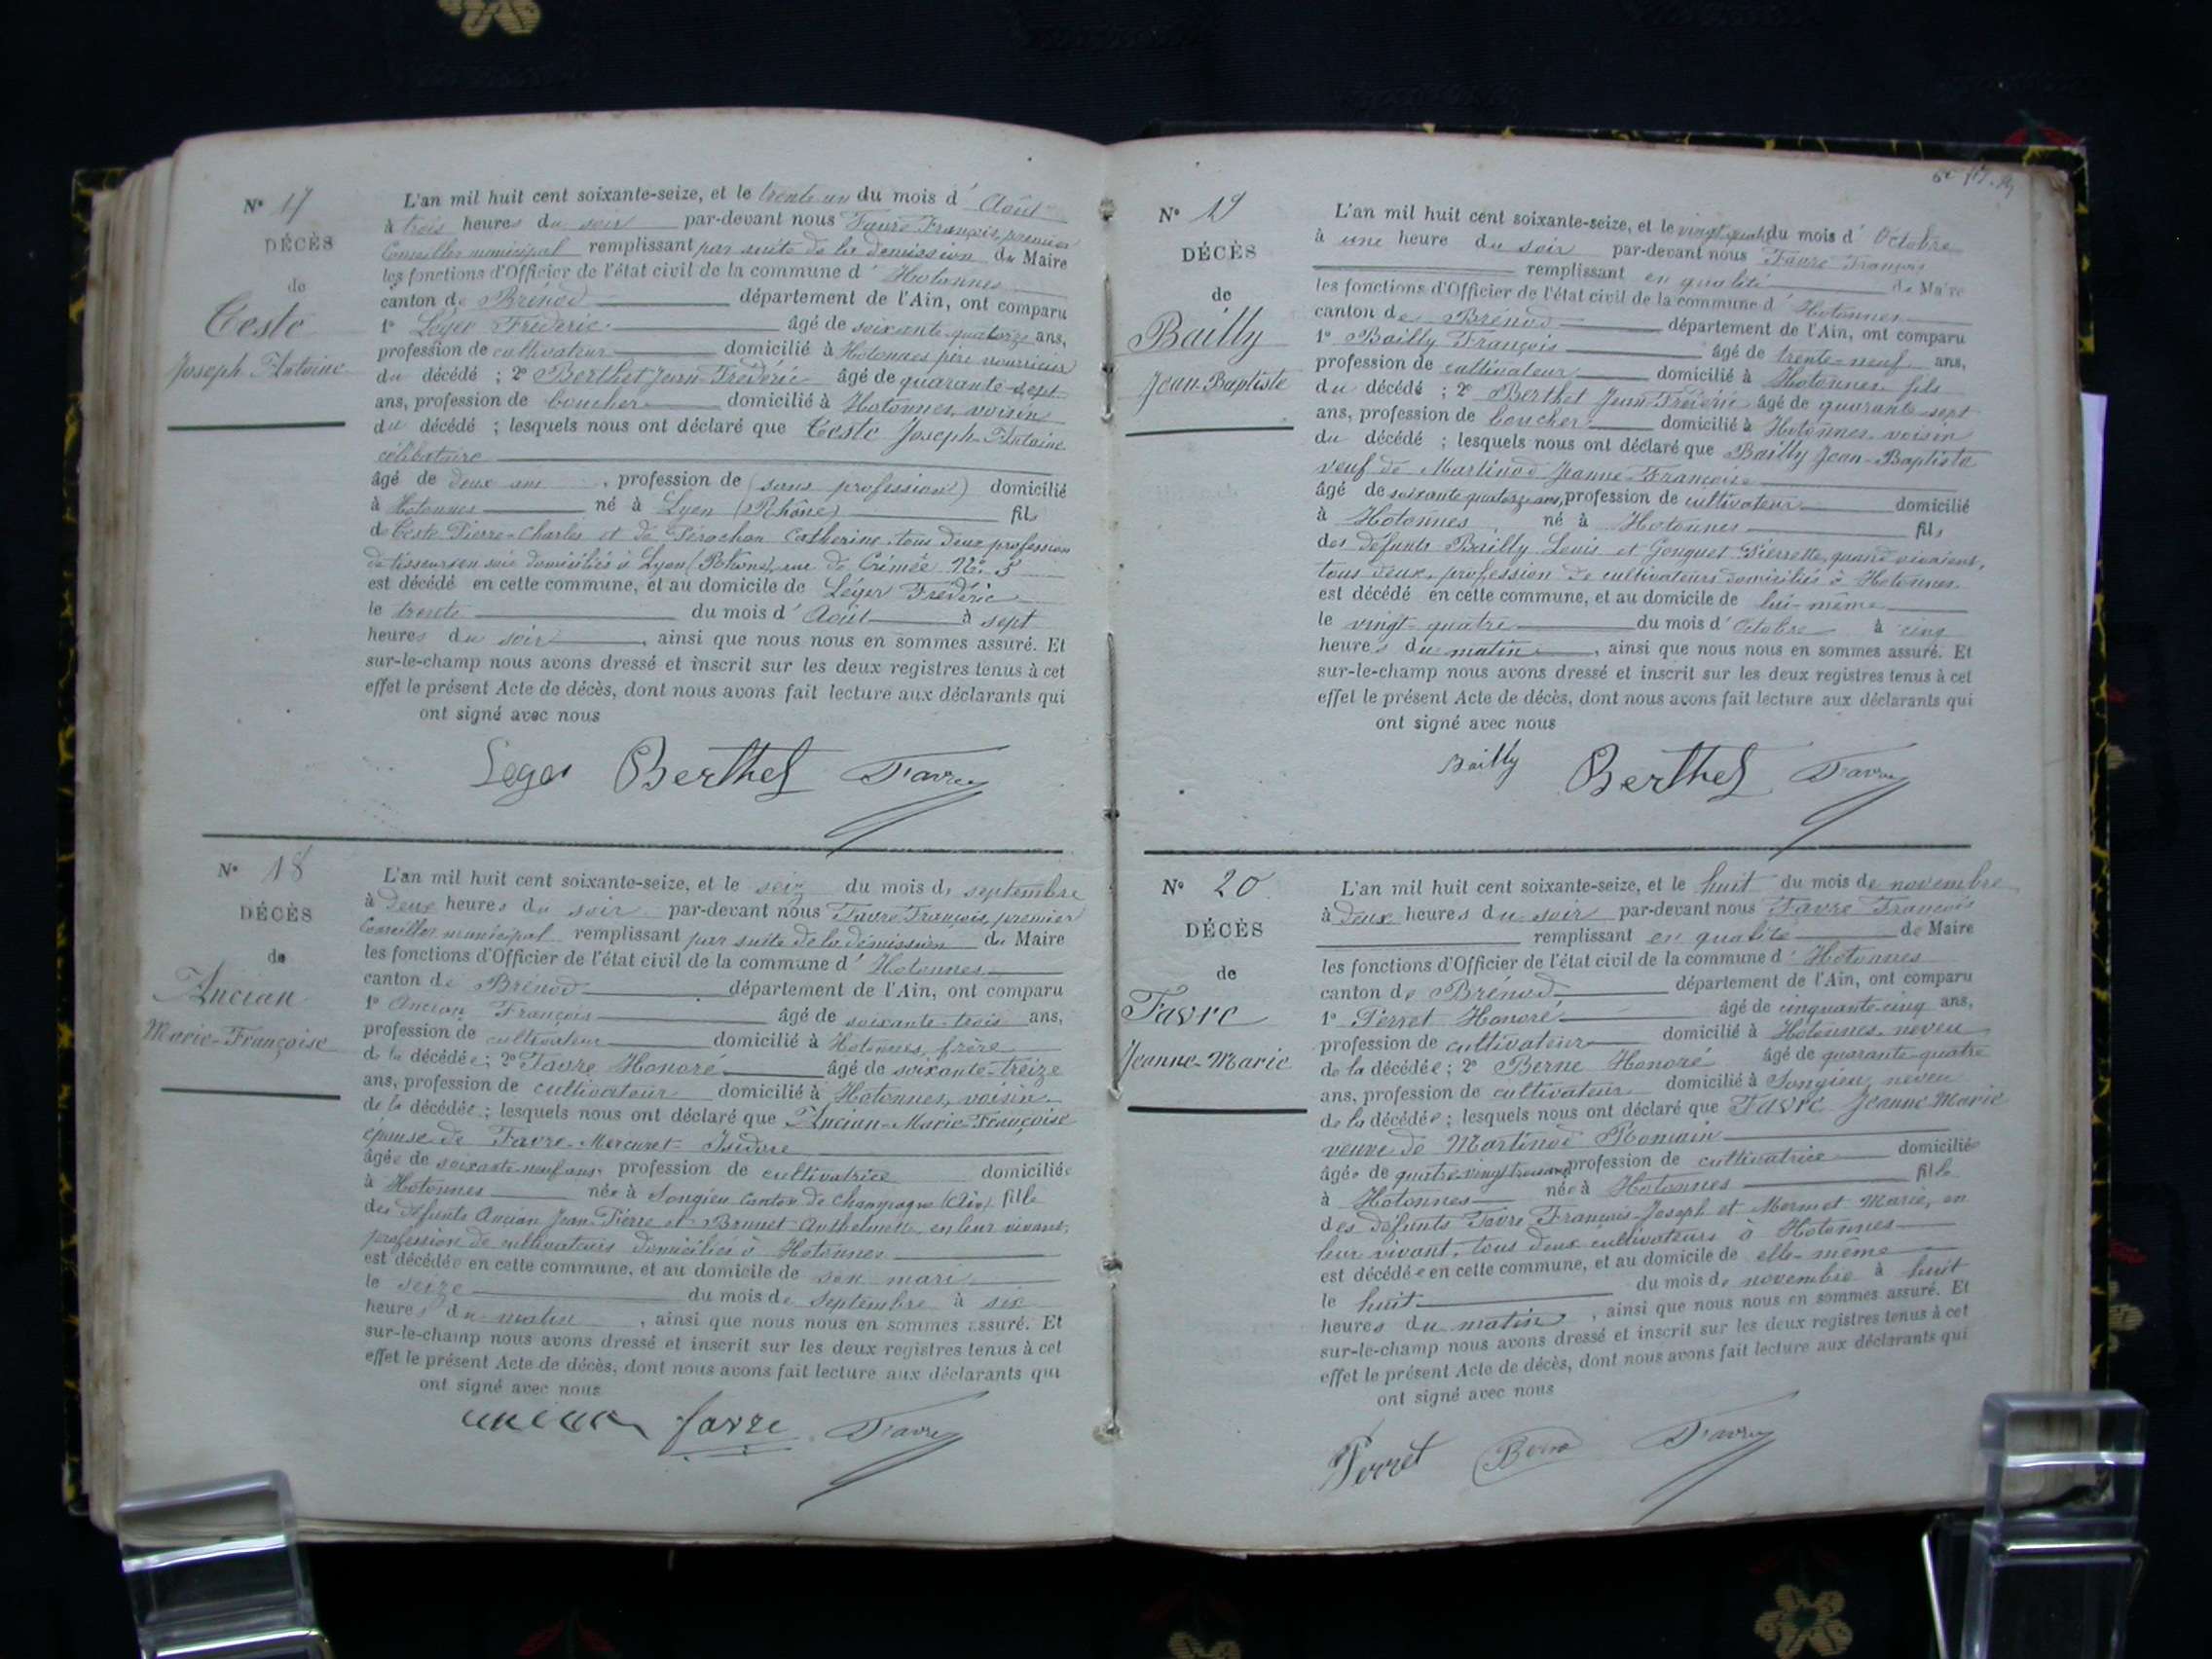 N° 17
DÉCÈS
de
Ceste
Joseph Antoine
L'an mil huit cent soixante-seize, et le trente un du mois d' Août
à trois heures du soir par-devant nous Favre François, premier
Conseiller municipal remplissant par suite de la démission du Maire
les fonctions d'Officier de l'état civil de la commune d' Hotonnes
canton de Brénod département de l'Ain, ont comparu
1° Léger Frédéric âgé de soixante quatorze ans,
profession de cultivateur domicilié à Hotonnes père nourricier
du décédé ; 2° Berthet Jean Frédéric âgé de quarante-sept
ans, profession de boucher domicilié à Hotonnes, voisin
du décédé ; lesquels nous ont déclaré que Ceste Joseph-Antoine
célibataire
âgé de deux ans , profession de (sans profession) domicilié
à Hotonnes né à Lyon (Rhône) fils
de Ceste Pierre-Charles et de Catherine, tous deux profession
de tisseurs en soie domiciliés à Lyon (Rhône), rue de Crimée N° 5
est décédé en cette commune, et au domicile de Léger Frédéric
le trente du mois d' Août à sept
heures du soir , ainsi que nous nous en sommes assuré. Et
sur-le-champ nous avons dressé et inscrit sur les deux registres tenus à cet
effet le présent Acte de décès, dont nous avons fait lecture aux déclarants qui
ont signé avec nous
Leger Berthet Favre
N° 18
DÉCÈS
de
Ancian
Marie-Françoise
L'an mil huit cent soixante-seize, et le seiz du mois de septembre
à deux heures du soir par-devant nous Favre François, premier
Conseiller municipal remplissant par suite de la démission du Maire
les fonctions d'Officier de l'état civil de la commune d' Hotonnes
canton de Brénod département de l'Ain, ont comparu
1° Ancian François âgé de soixante-trois ans,
profession de cultivateur domicilié à Hotonnes, frère
de la décédée ; 2° Favre Honoré âgé de soixante-treize
ans, profession de cultivateur domicilié à Hotonnes, voisin
de la décédée ; lesquels nous ont déclaré que Ancian-Marie-Françoise
épouse de Favre-Mercuret Isidore
âgée de soixante-neuf ans, profession de cultivatrice domiciliée
à Hotonnes née à Songieu canton de Champagne (Ain) fille
des défunts Ancian Jean-Pierre et Brunet Anthelmette, en leur vivant,
profession de cultivateurs domiciliés à Hotonnes
est décédée en cette commune, et au domicile de son mari
le seize du mois de septembre à six
heures du matin , ainsi que nous nous en sommes assuré. Et
sur-le-champ nous avons dressé et inscrit sur les deux registres tenus à cet
effet le présent Acte de décès, dont nous avons fait lecture aux déclarants qui
ont signé avec nous
ancian favre Favre
N° 19
DÉCÈS
de
Bailly
Jean-Baptiste
L'an mil huit cent soixante-seize, et le vingt quatre du mois d' Octobre
à une heure du soir par-devant nous Favre François
remplissant en qualité de Maire
les fonctions d'Officier de l'état civil de la commune d' Hotonnes
canton de Brénod département de l'Ain, ont comparu
1° Bailly François âgé de trente-neuf ans,
profession de cultivateur domicilié à Hotonnes, fils
du décédé ; 2° Berthet Jean Frédéric âgé de quarante-sept
ans, profession de boucher domicilié à Hotonnes, voisin
du décédé ; lesquels nous ont déclaré que Bailly Jean-Baptiste
veuf de Martinod Jeanne-Françoise
âgé de soixante quatorze ans, profession de cultivateur domicilié
à Hotonnes , né à Hotonnes fils
des défunts Bailly Louis et Gonguet Pierrette, quand vivaient,
tous deux, profession de cultivateurs domiciliés à Hotonnes.
est décédé en cette commune, et au domicile de lui-même
le vingt-quatre du mois d' Octobre à cinq
heures du matin , ainsi que nous nous en sommes assuré. Et
sur-le-champ nous avons dressé et inscrit sur les deux registres tenus à cet
effet le présent Acte de décès, dont nous avons fait lecture aux déclarants qui
ont signé avec nous
Bailly Berthet Favre
N° 20
DÉCÈS
de
Favre
Jeanne-Marie
L'an mil huit cent soixante-seize, et le huit du mois de novembre
à deux heures du soir par-devant nous Favre François
remplissant en qualité de Maire
les fonctions d'Officier de l'état civil de la commune d' Hotonnes
canton de Brénod département de l'Ain, ont comparu
1° Perret Honoré âgé de cinquante-cinq ans,
profession de cultivateur domicilié à Hotonnes, neveu
de la décédée ; 2° Berne Honoré âgé de quarante-quatre
ans, profession de cultivateur domicilié à Songieu, neveu
de la décédée ; lesquels nous ont déclaré que Favre Jeanne Marie
veuve de Martinod Romain
âgée de quatre-vingt trois ans, profession de cultivatrice domiciliée
à Hotonnes née à Hotonnes fille
des défunts Favre François-Joseph et Mermet Marie, en
leur vivant, tous deux cultivateurs à Hotonnes
est décédée en cette commune, et au domicile de elle-même
le huit du mois de novembre à huit
heures du matin , ainsi que nous nous en sommes assuré. Et
sur-le-champ nous avons dressé et inscrit sur les deux registres tenus à cet
effet le présent Acte de décès, dont nous avons fait lecture aux déclarants qui
ont signé avec nous
Perret Berne Favre